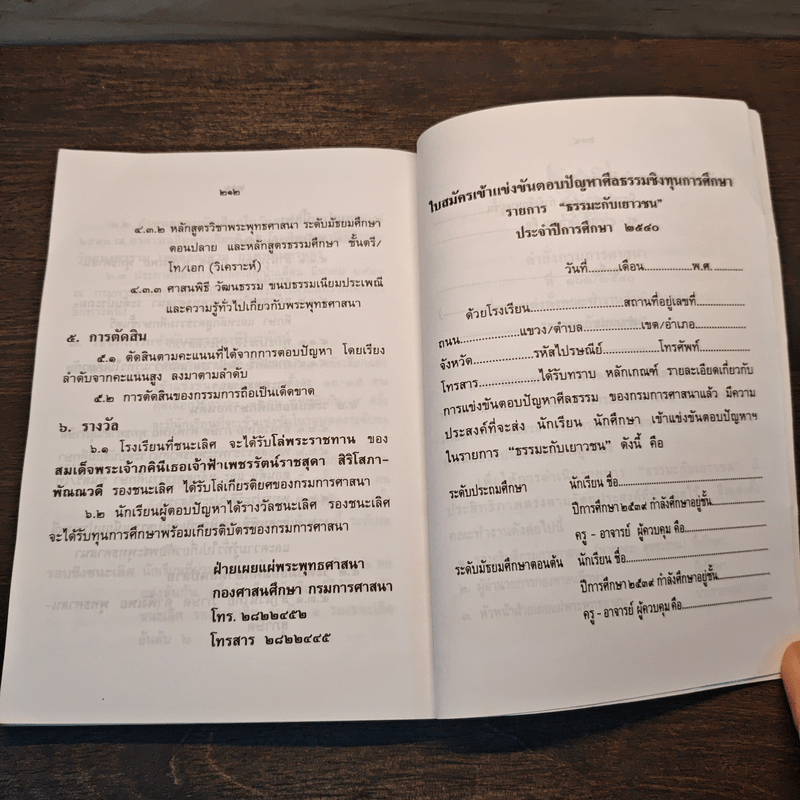 ๒๑๒
๔.๓.๒ หลักสูตรวิชาพระพุทธศาสนา ระดับมัธยมศึกษา
ตอนปลาย และหลักสูตรธรรมศึกษา ชั้นตรี/
โท/เอก (วิเคราะห์)
๔.๓.๓ ศาสนพิธี วัฒนธรรม ขนบธรรมเนียมประเพณี
และความรู้ทั่วไปเกี่ยวกับพระพุทธศาสนา
๕. การตัดสิน
๕.๑ ตัดสินตามคะแนนที่ได้จากการตอบปัญหา โดยเรียง
ลำดับจากคะแนนสูง ลงมาตามลำดับ
๕.๒ การตัดสินของกรรมการถือเป็นเด็ดขาด
๖. รางวัล
๖.๑ โรงเรียนที่ชนะเลิศ จะได้รับโล่พระราชทาน ของ
สมเด็จพระเจ้าภคินีเธอเจ้าฟ้าเพชรรัตน์ราชสุดา สิริโสภา-
พัณณวดี รองชนะเลิศ ได้รับโล่เกียรติยศของกรมการศาสนา
๖.๒ นักเรียนผู้ตอบปัญหาได้รางวัลชนะเลิศ รองชนะเลิศ
จะได้รับทุนการศึกษาพร้อมเกียรติบัตรของกรมการศาสนา
ฝ่ายเผยแผ่พระพุทธศาสนา
กองศาสนศึกษา กรมการศาสนา
โทร. ๒๘๒๒๔๕๒
โทรสาร ๒๘๒๒๔๔๕
ใบสมัครเข้าแข่งขันตอบปัญหาศีลธรรมชิงทุนการศึกษา
รายการ "ธรรมะกับเยาวชน"
ประจำปีการศึกษา ๒๕๔๐
วันที่..........เดือน................พ.ศ. ..........
ด้วยโรงเรียน........................สถานที่อยู่เลขที่..............
ถนน....................แขวง/ตำบล....................เขต/อำเภอ..................
จังหวัด....................รหัสไปรษณีย์...................โทรศัพท์..................
โทรสาร..................ได้รับทราบ หลักเกณฑ์ รายละเอียดเกี่ยวกับ
การแข่งขันตอบปัญหาศีลธรรม ของกรมการศาสนาแล้ว มีความ
ประสงค์ที่จะส่ง นักเรียน นักศึกษา เข้าแข่งขันตอบปัญหาฯ
ในรายการ "ธรรมะกับเยาวชน" ดังนี้ คือ
ระดับประถมศึกษา นักเรียน ชื่อ........................................
ปีการศึกษา ๒๕๓๙ กำลังศึกษาอยู่ชั้น..................
ครู - อาจารย์ ผู้ควบคุม คือ..........................
ระดับมัธยมศึกษาตอนต้น นักเรียน ชื่อ........................................
ปีการศึกษา ๒๕๓๙ กำลังศึกษาอยู่ชั้น..................
ครู - อาจารย์ ผู้ควบคุม คือ..........................